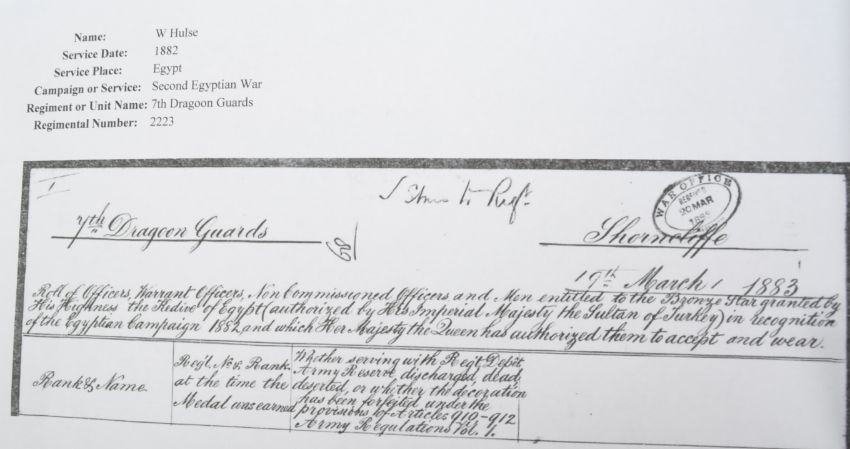 Name: W Hulse
Service Date: 1882
Service Place: Egypt
Campaign or Service: Second Egyptian War
Regiment or Unit Name: 7th Dragoon Guards
Regimental Number: 2223
WAR OFFICE
20 MAR
7th Dragoon Guards
Shorncliffe
19th March 1883
Roll of Officers, Warrant Officers, Non Commissioned Officers and Men entitled to the Bronze Star granted by
His Highness the Kedive of Egypt (authorized by His Imperial Majesty the Sultan of Turkey) in recognition
of the Egyptian Campaign 1882, and which Her Majesty the Queen has authorized them to accept and wear.
Rank & Name
Regl. No. & Rank
at the time the
Medal was earned
Whether serving with Regt. Depôt
Army Reserve, discharged, dead,
deserted, or whether the decoration
has been forfeited under the
provisions of Articles 910-912
Army Regulations Vol. 1.